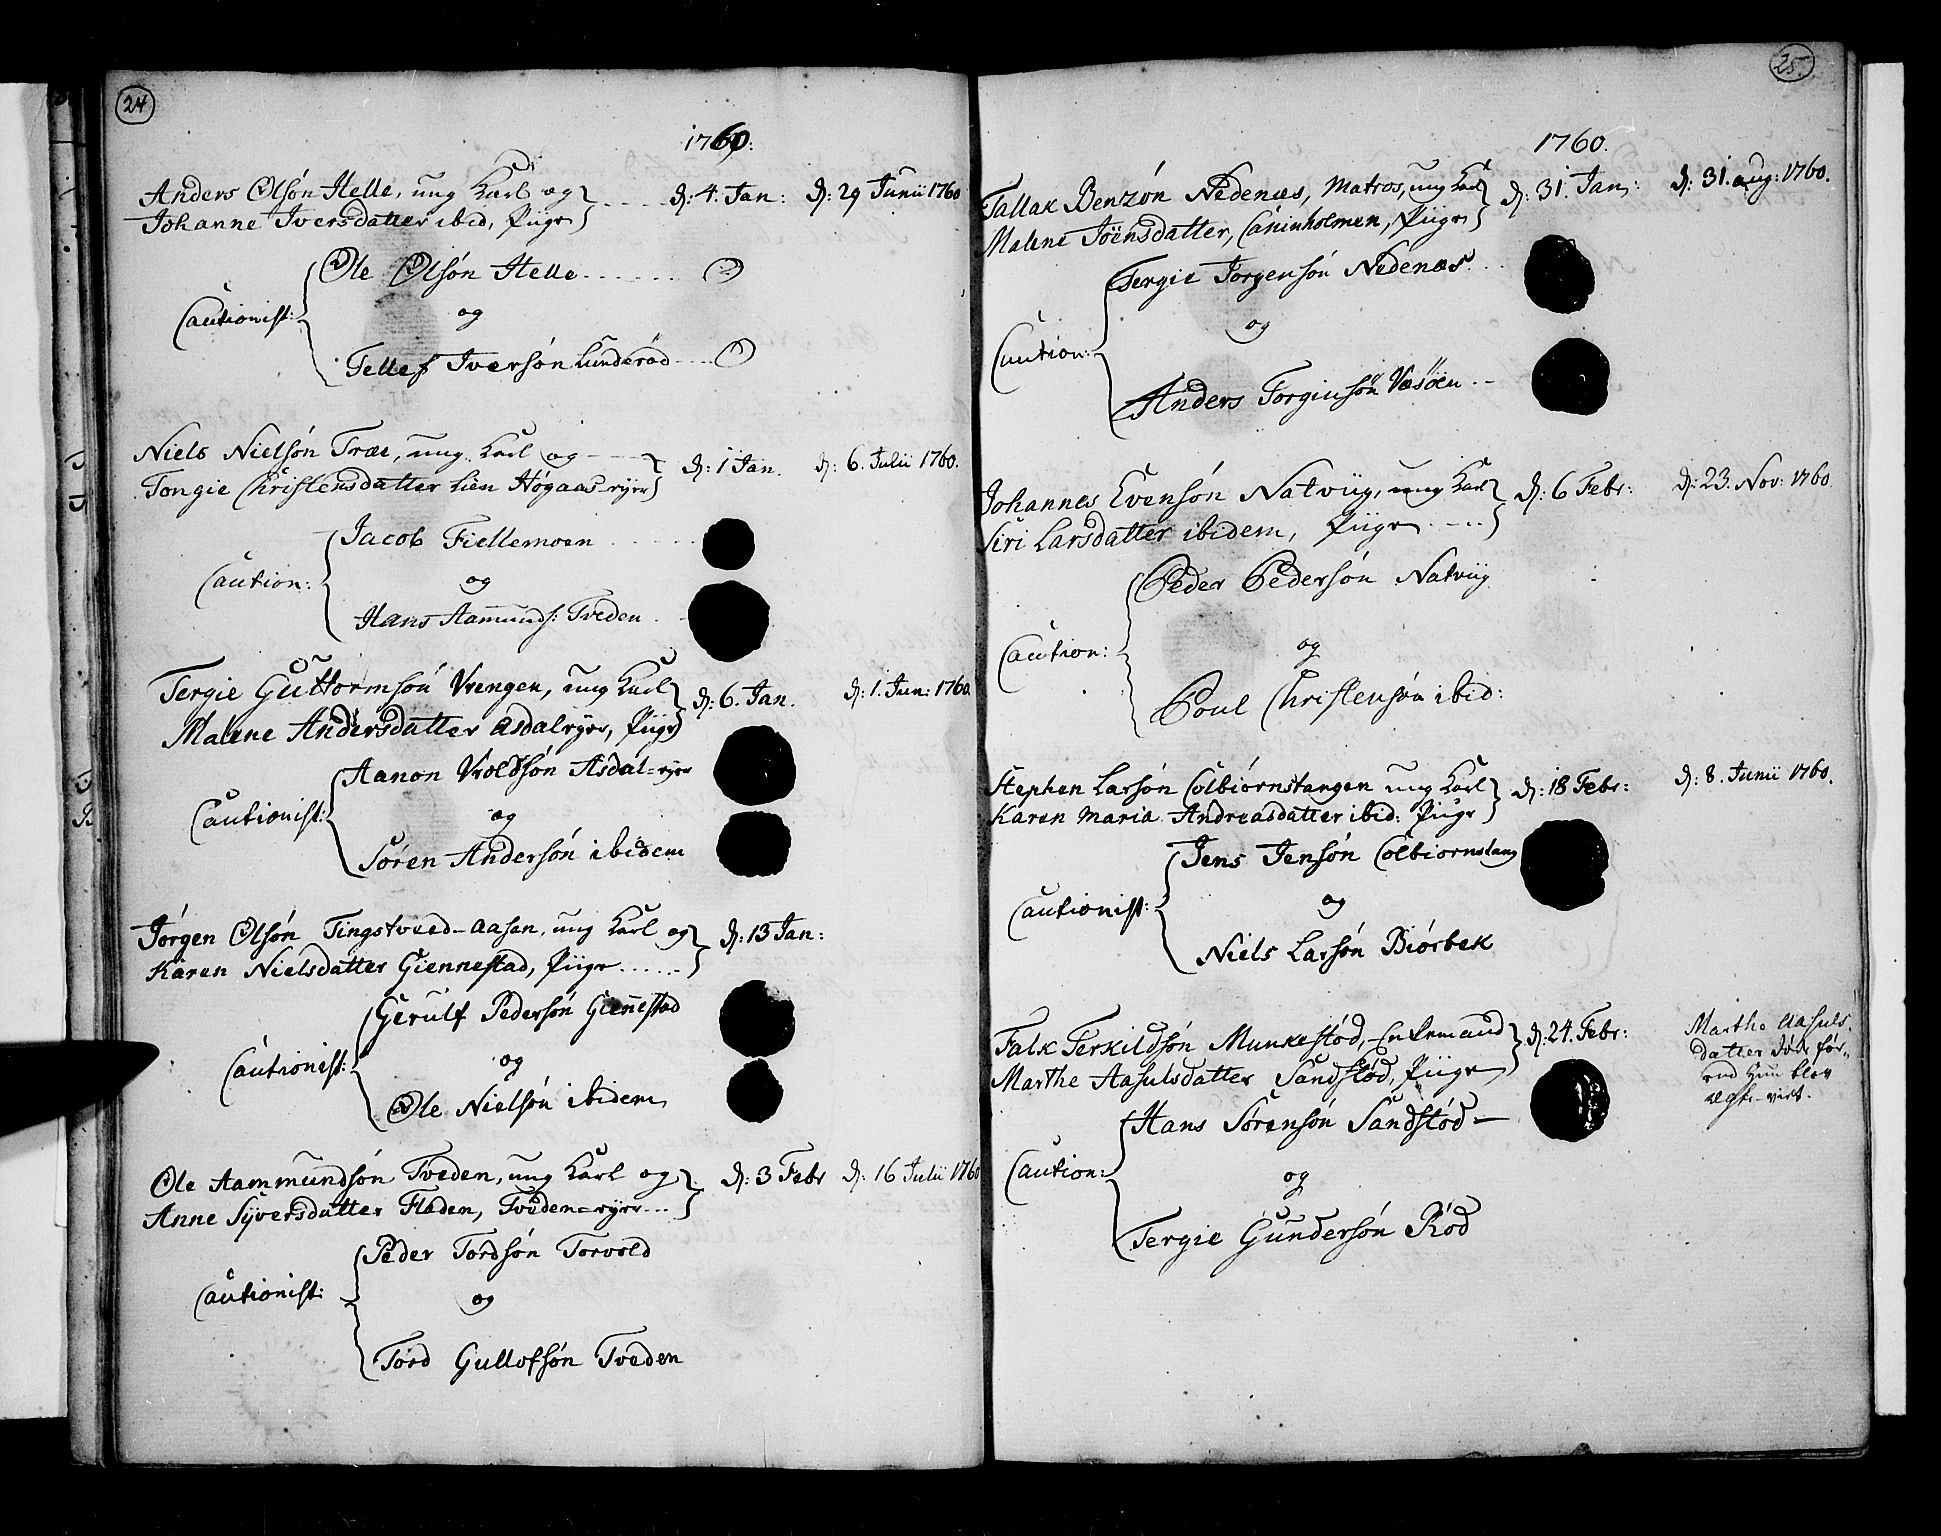 24
1760.
Anders Olsøn Helle, ung Karl og d: 4. Jan: d: 29 Junii 1760
Johanne Iversdatter ibid, Piige
Ole Olsøn Helle
Cautionist: og
Tellef Iversøn Lunderød
Niels Nielsøn Træe, ung Karl og d: 1 Jan. d: 6. Julii 1760.
Tongie Christensdatter Lien Høgaas-eyer
Jacob Fiellemoen
Caution: og
Hans Aamunds: Tveden
Tergie Guttormsøn Vrengen, ung Karl d: 6. Jan. d: 1. Jun: 1760.
Malene Andersdatter Asdaleyer, Piige
Aanon Vroldsøn Asdal-eyer
Cautionist: og
Søren Andersøn ibidem
Jørgen Olsøn Tingstveed-Aasen, ung Karl og d: 13 Jan:
Karen Nielsdatter Giennestad, Piige
Gerulf Pedersøn Giennestad
Cautionist: og
Ole Nielsøn ibidem
Ole Aammundsøn Tveden, ung Karl og d: 3 Febr d: 16 Julii 1760
Anne Syversdatter Fladen, Tveden-eyer
Peder Tordsøn Torvold
Cautionist: og
Tord Gullofsøn Tveden
25.
1760.
Tallak Benzøn Nedenæs, Matros, ung Karl d: 31. Jan: d: 31. aug: 1760.
Malene Joensdatter, Piige
Tergie Jørgensøn Nedenæs
Caution: og
Anders Torgiusøn Væsøen
Johannes Evensøn Natviig, ung Karl d: 6 Febr: d: 23. Nov: 1760.
Siri Larsdatter ibidem, Piige
Peder Pedersøn Natviig
Caution: og
Poul Christensøn ibid:
Stephen Larsøn Colbiørnstangen ung Karl d: 18 Febr: d: 8. Junii 1760.
Karen Maria Andreasdatter ibid: Piige
Jens Jensøn Colbiørnstang
Cautionist: og
Niels Larsøn Biørbek
Falk Terkildsøn Munkestød, Enkemand d: 24. Febr:
Marthe Aasulsdatter Sandstød, Piige
Marthe Aasuls-
datter døde før-
end Hun blev
ægte-viet.
Hans Sørensøn Sandstød
Caution: og
Tergie Gundersøn Rød